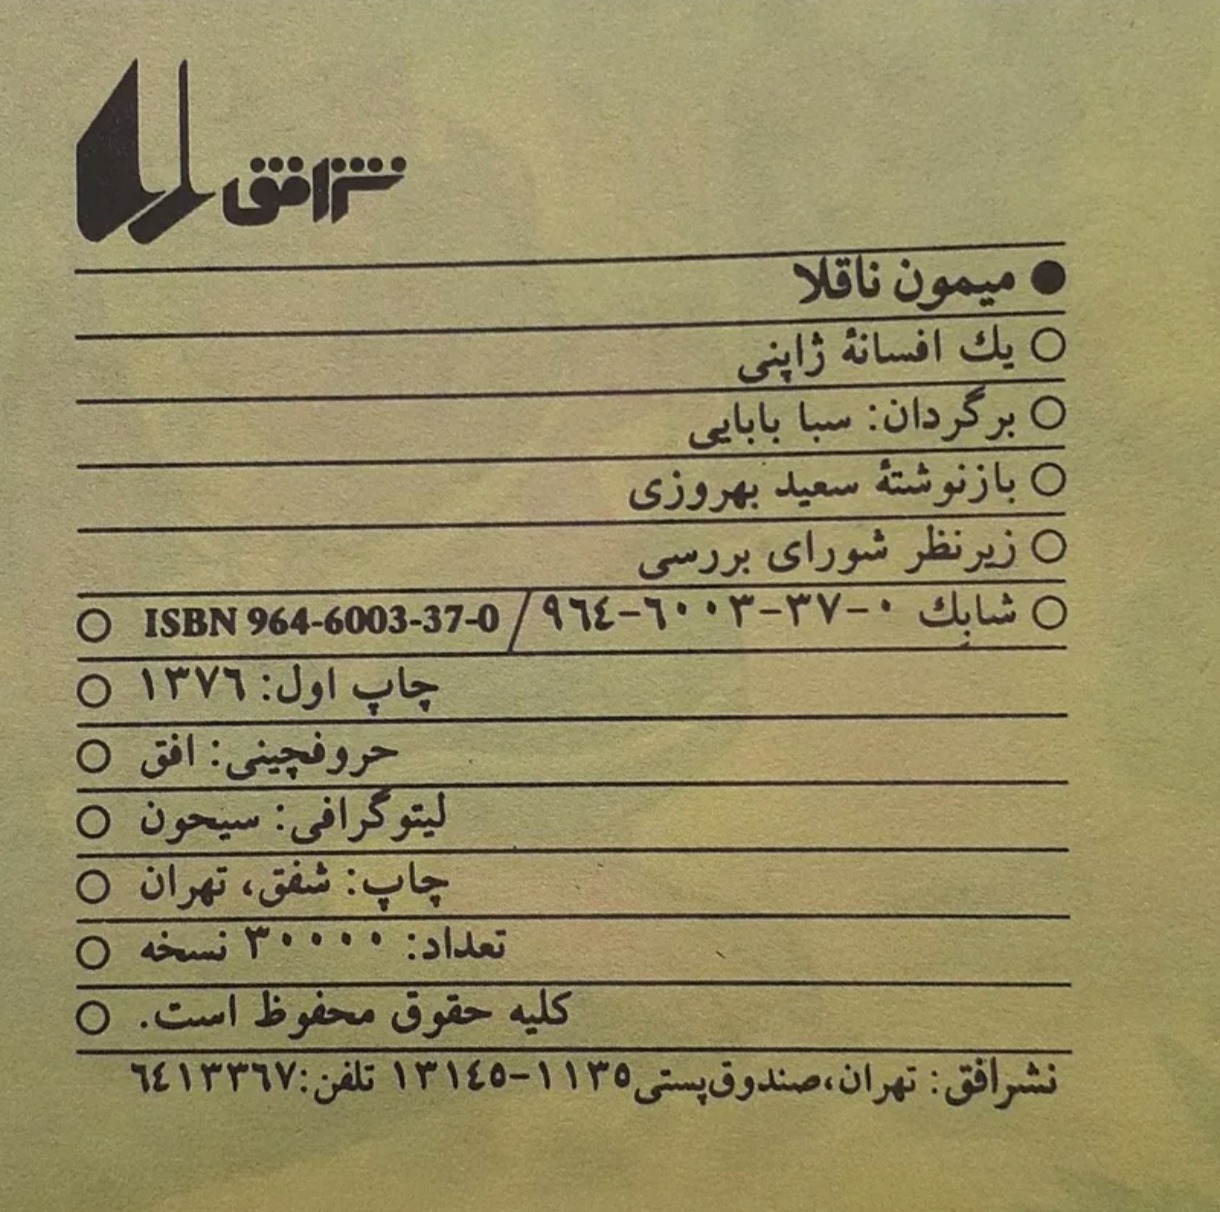 نشر افق
● میمون ناقلا
○ یك افسانهٔ ژاپنی
○ برگردان: سبا بابایی
○ بازنوشتهٔ سعید بهروزی
○ زیرنظر شورای بررسی
○ شابك ۰-۳۷-۶۰۰۳-۹۶۴ / ISBN 964-6003-37-0 ○
چاپ اول: ۱۳۷۶ ○
حروفچینی: افق ○
لیتوگرافی: سیحون ○
چاپ: شفق، تهران ○
تعداد: ۳۰۰۰۰ نسخه ○
کلیه حقوق محفوظ است. ○
نشرافق: تهران،صندوق‌پستی ۱۱۳۵-۱۳۱۴۵ تلفن:۶۴۱۳۳۶۷